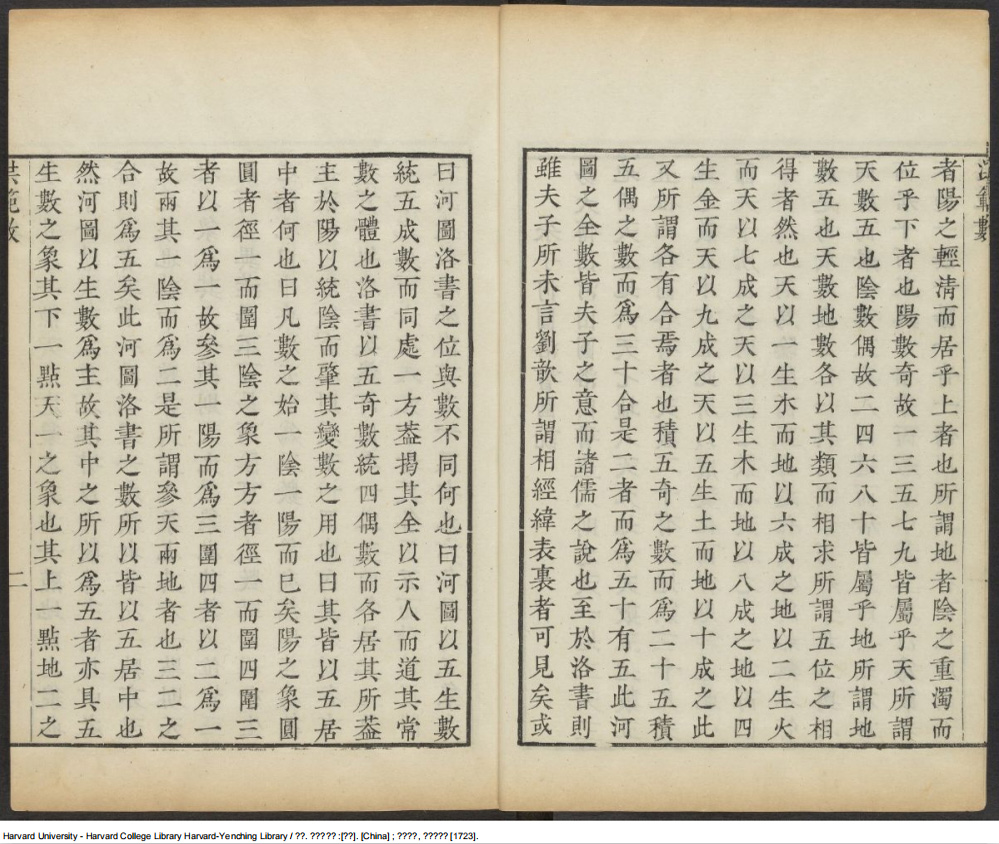 者陽之輕清而居乎上者也所謂地者陰之重濁而
位乎下者也陽數奇故一三五七九皆屬乎天所謂
天數五也陰數偶故二四六八十皆屬乎地所謂地
數五也天數地數各以其類而相求所謂五位之相
得者然也天以一生水而地以六成之地以二生火
而天以七成之天以三生木而地以八成之地以四
生金而天以九成之天以五生土而地以十成之此
又所謂各有合焉者也積五奇之數而爲二十五積
五偶之數而爲三十合是二者而爲五十有五此河
圖之全數皆夫子之意而諸儒之說也至於洛書則
雖夫子所未言劉歆所謂相經緯表裏者可見矣或
曰河圖洛書之位與數不同何也曰河圖以五生數
統五成數而同處一方葢揭其全以示人而道其常
數之體也洛書以五奇數統四偶數而各居其所葢
主於陽以統陰而肇其變數之用也曰其皆以五居
中者何也曰凡數之始一陰一陽而已矣陽之象圓
圓者徑一而圍三陰之象方方者徑一而圍四圍三
者以一爲一故參其一陽而爲三圍四者以二爲一
故兩其一陰而爲二是所謂參天兩地者也三二之
合則爲五矣此河圖洛書之數所以皆以五居中也
然河圖以生數爲主故其中之所以爲五者亦具五
生數之象其下一點天一之象也其上一點地二之
二
Harvard University - Harvard College Library Harvard-Yenching Library / ??. ????? :[??]. [China] ; ????, ????? [1723].